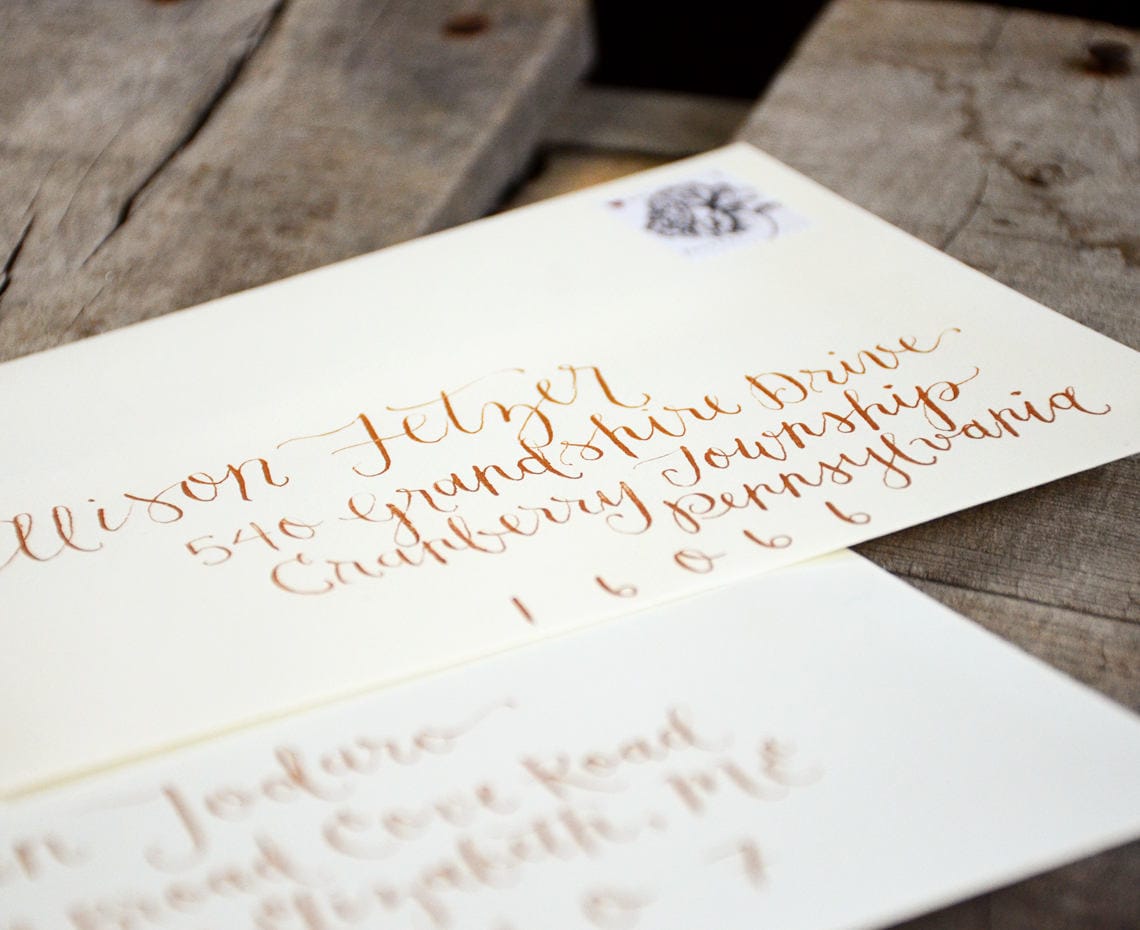 Allison Fetzer
540 Grandshire Drive
Cranberry Township
Pennsylvania
16066
Todaro
Broad Cove Road
Elizabeth, ME
0 7